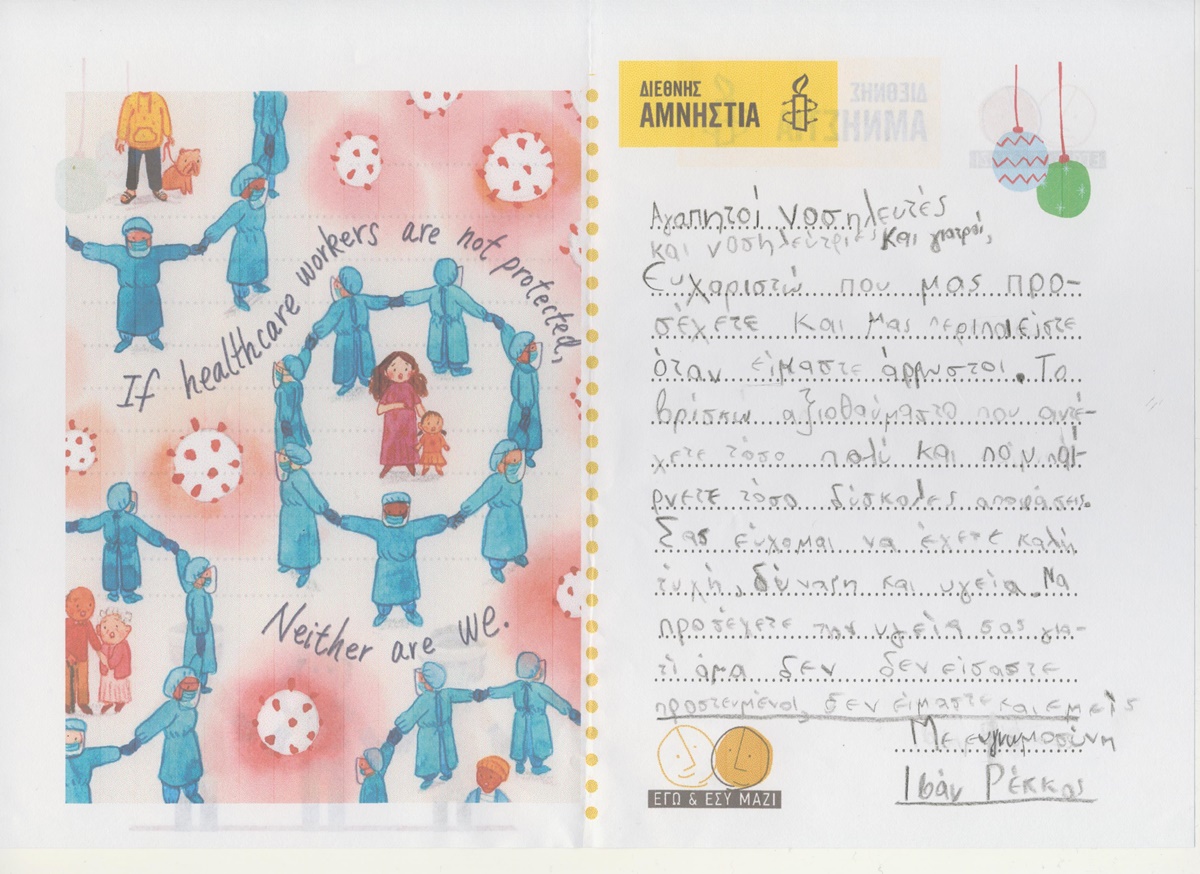 If healthcare workers are not protected,
Neither are we.
ΔΙΕΘΝΗΣ
ΑΜΝΗΣΤΙΑ
Αγαπητοί νοσηλευτές
και νοσηλεύτριες και γιατροί,
Ευχαριστώ που μας προ-
σέχετε και μας περιποιείστε
όταν είμαστε άρρωστοι. Το
βρίσκω αξιοθαύμαστο που αντέ-
χετε τόσο πολύ και που παί-
ρνετε τόσο δύσκολες αποφάσεις.
Σας εύχομαι να έχετε καλή
τύχη, δύναμη και υγεία. Να
προσέχετε την υγεία σας για-
τί άμα δεν δεν είσαστε
προστευμένοι, δεν είμαστε και εμείς
Με ευγνωμοσύνη
Ιβάν Ρέκκας
ΕΓΩ & ΕΣΥ ΜΑΖΙ